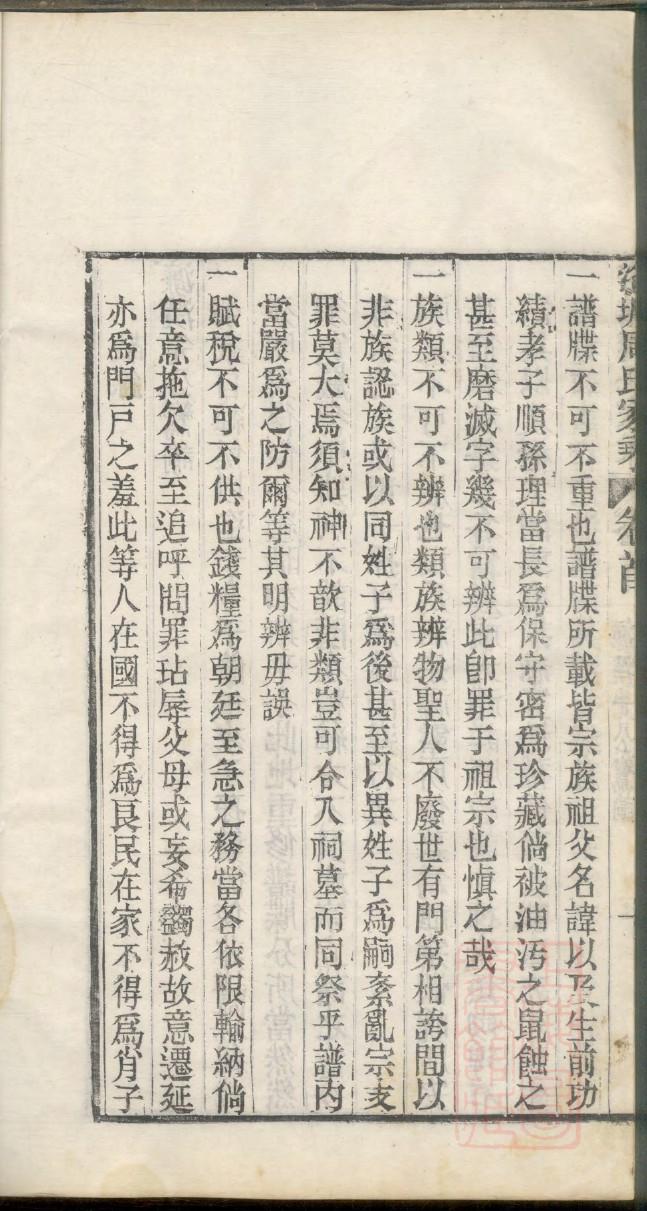 周氏家乘 卷首
一譜牒不可不重也譜牒所載皆宗族祖父名諱以及生前功
績孝子順孫理當長爲保守密爲珍藏倘被油汚之鼠蝕之
甚至磨滅字幾不可辨此卽罪于祖宗也愼之哉
一族類不可不辨也類族辨物聖人不廢世有門第相誇間以
非族認族或以同姓子爲後甚至以異姓子爲嗣紊亂宗支
罪莫大焉須知神不歆非類豈可令入祠墓而同祭乎譜內
當嚴爲之防爾等其明辨毋誤
一賦稅不可不供也錢糧爲朝廷至急之務當各依限輸納倘
任意拖欠卒至追呼問罪玷辱父母或妄希蠲赦故意遷延
亦爲門戸之羞此等人在國不得爲良民在家不得爲肖子